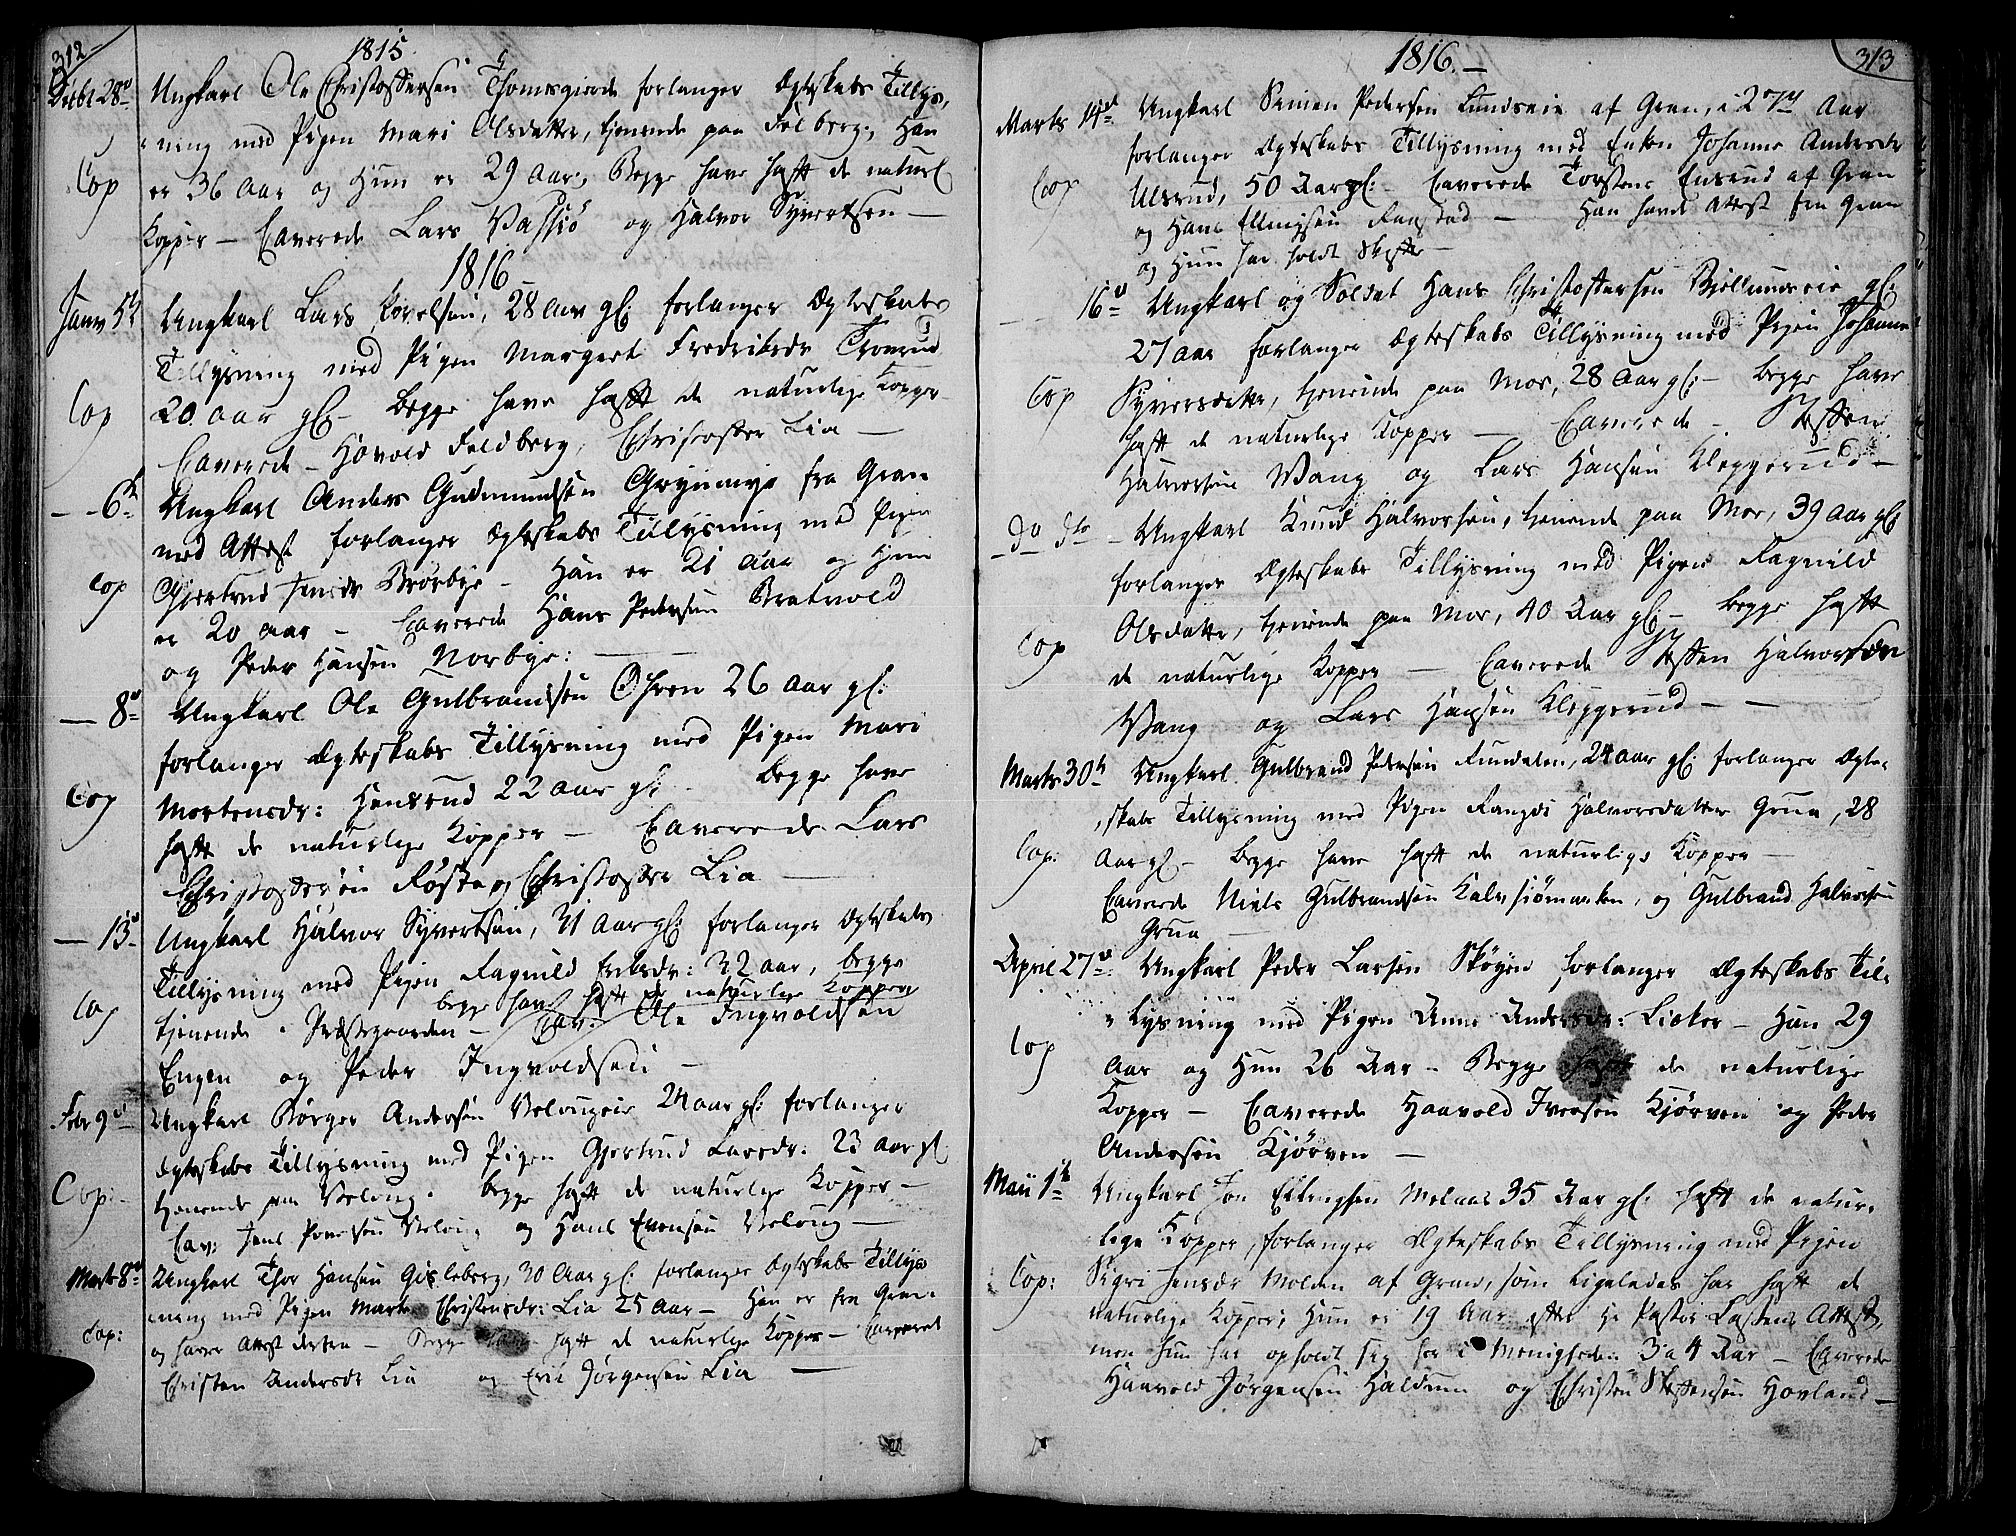 312
1815
Decbr 28de Ungkarl Ole Christophersen Thomsgierde forlanger Ægteskabs Tillys,
ning med Pigen Mari Olsdatter, tjenende paa Felberg, Han
Cop er 36 Aar og Hun er 29 Aar, Begge have haft de naturl
Kopper — Caverede Lars Vassiö og Halvor Syvertsen —
1816
Janv 5te Ungkarl Lars Povelsen, 28 aar gl: forlanger Ægteskabs
Tillysning med Pigen Margert Fredriksdr
Cop 20 aar gl — begge have haft de naturlige Kopper
Caverede — Hovold Feldberg, Christopher Lia —
— 6te Ungkarl Anders Gudmundsen Grynmye fra Gran
med Attest forlanger Ægteskabs Tillysning med Pigen
Cop Gjertrud Jensdr Brörbye — Han er 21 Aar og Hun
er 20 aar — Caverede Hans Pedersen Bratvold
og Peder Hansen Norbye: —
— 8de Ungkarl Ole Gulbrandsen Öhren 26 Aar gl:
forlanger Ægteskabs Tillysning med Pigen Mari
Cop Mortensdr: Hensrud 22 aar gl: begge have
haft de naturlige Kopper — Caverede Lars
Christophersen Röste, Christopher Lia —
— 13de Ungkarl Halvor Syvertsen, 31 Aar gl: forlanger Ægteskabs
Tillysning med Pigen Ragnild Eriksdr: 32 aar, begge
begge have haft de naturlige Kopper
Cop tjenende i Præstegaarden — Cav: Ole Ingvoldsen
Engen og Peder Ingvoldsen —
Febr 9de Ungkarl Börger Andersen Velougeie 24 aar gl: forlanger
Ægteskabs Tillysning med Pigen Gjertrud Larsdr: 23 Aar gl
Cop: tjenende paa Veloug. begge haft de naturlige Kopper —
Cav: Jens Povelsen Veloug og Hans Evensen Veloug —
Marts 8de Ungkarl Thor Hansen Gisleberg, 30 Aar gl: forlanger Ægteskabs Tillys
ning med Pigen Marte Christensdr: Lia 25 Aar — Han er fra Gran
Cop: og haver Attest derfra — Begge have haft de naturlige Kopper — Caverede
Christen Andersen Lia og Eric Jörgensen Lia —
313
1816. —
Marts 14de Ungkarl Simen Pedersen Lundseie af Gran, i 27de Aar
forlanger Ægteskabs Tillysning med Enken Johanne Andersdr
Cop Ulsrud, 50 Aar gl: — Caverede Torsten Ensrud af Gran
og Hans Ellingsen Raastad — Han havde Attest fra Gran
og Hun har holdt Skifte —
— 16de Ungkarl og Soldat Hans Christophersen Bjellumseie gl:
27 aar forlanger Ægteskabs Tillysning med Pigen Johanne
Cop Syversdatter, tjenende paa Moe, 28 Aar gl: — begge have
haft de naturlige Kopper — Caverede — Steffen
Halvorsen Wang og Lars Hansen Kleggerud —
— do dto — Ungkarl Knud Halvorsen, tjenende paa Moe, 39 Aar gl:
forlanger Ægteskabs Tillysning med Pigen Ragnild
Cop Olsdatter, tjenende paa Moe, 40 Aar gl: — begge haft
de naturlige Kopper — Caverede Steffen Halvorsen
Wang og Lars Hansen Kleggerud — —
Marts 30te Ungkarl Gulbrand Pedersen Rundelen, 24 aar gl: forlanger Ægte,
skabs Tillysning med Pigen Rangdi Halvorsdatter Grua, 28
Cop: Aar gl — begge have haft de naturlige Kopper —
Caverede Niels Gulbrandsen Kalvsiömarken, og Gulbrand Halvorsen
Grua —
April 27de: Ungkarl Peder Larsen Skögen forlanger Ægteskabs Til,
lysning med Pigen Anne Andersdr: Lieker — Han 29
Cop Aar og Hun 26 Aar — Begge haft de naturlige
Kopper — Caverede Haavold Iversen Kjörven og Peder
Andersen Kjörven —
Maii 1te Ungkarl Jon Ellingsen Melaas 35 Aar gl: haft de natur,
lige Kopper, forlanger Ægteskabs Tillysning med Pigen
Cop: Sigri Jensdr Molden af Gran, som ligeledes har haft de
naturlige Kopper; Hun er 19 Aar efter Hr Pastor Lassens Attest,
men hun har opholdt sig her i Menigheden 3 a 4 Aar — Caverede
Haavold Jörgensen Haldum og Christen Steffensen Hovland —